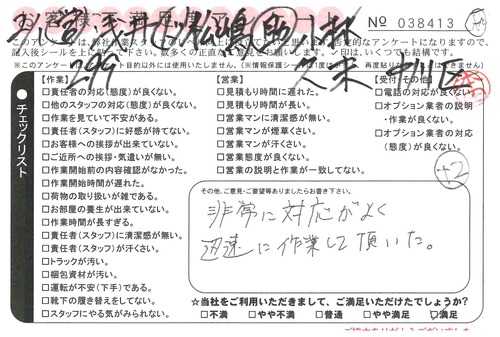 № 038413
のアンケートは
的なアンケートになりますので、
記入後シールを
いつでも結構です。
※このアンケート
目的以外には使用いたしません。
チェックリスト
【作業】
□責任者の対応(態度)が良くない。
□他のスタッフの対応(態度)が良くない。
□作業を見ていて不安がある。
□責任者(スタッフ)に好感が持てない。
□お客様への挨拶が出来ていない。
□ご近所への挨拶・気遣いが無い。
□作業開始前の内容確認がなかった。
□作業開始時間が遅れた。
□荷物の取り扱いが雑である。
□お部屋の養生が出来ていない。
□作業時間が長すぎる。
□責任者(スタッフ)に清潔感が無い。
□責任者(スタッフ)が汗くさい。
□トラックが汚い。
□梱包資材が汚い。
□運転が不安(下手)である。
□靴下の履き替えをしてない。
□スタッフにやる気がみられない。
【営業】
□見積もり時間に遅れた。
□見積もり時間が長い。
□営業マンに清潔感が無い。
□営業マンが煙草くさい。
□営業マンが汗くさい。
□営業態度が良くない。
□営業の説明と作業が一致してない。
【受付・その他】
□電話の対応が良くない。
□オプション業者の説明
・作業が良くない。
□オプション業者の対応
(態度)が良くない。
+2
その他、ご意見・ご要望等ありましたらお書き下さい。
非常に対応がよく
迅速に作業して頂いた。
☆当社をご利用いただきまして、ご満足いただけたでしょうか?
□不満 □やや不満 □普通 □やや満足 ☑満足